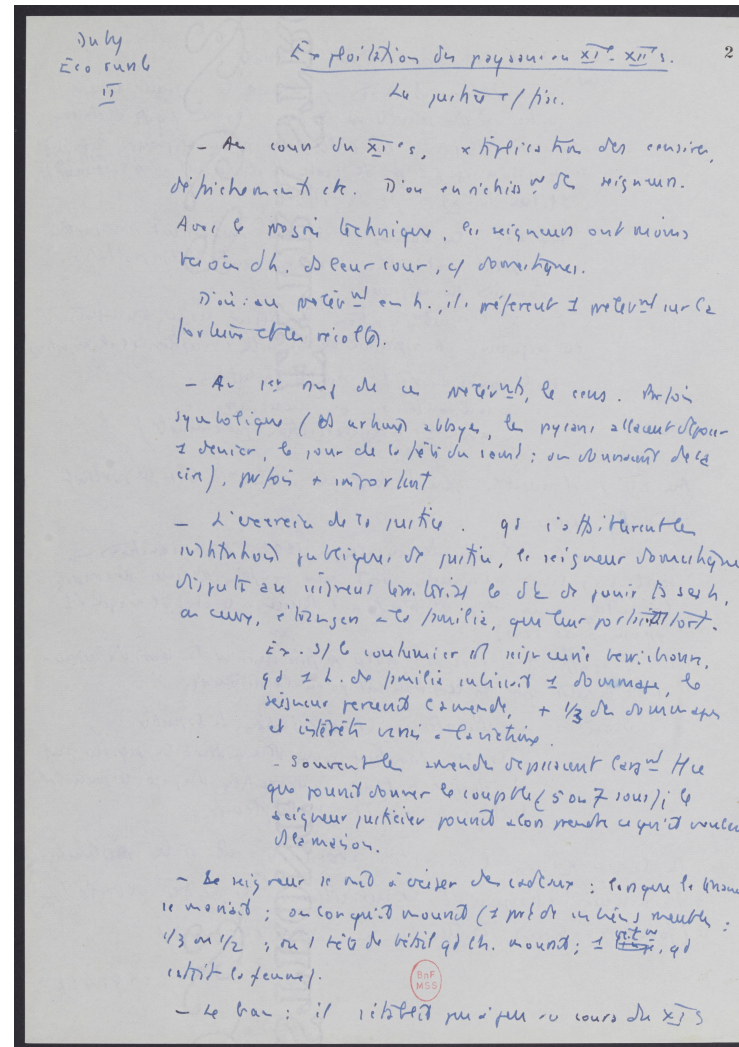 Duby
Eco rurale
II
2
Exploitation des paysans au XIe-XIIe s.
La justice / fisc.
- Au cours du XIe s, xtiplication des censives,
défrichements etc. D'où enrichisst des seigneurs.
Avec le progrès technique, les seigneurs ont moins
besoin d'h. ds leur cour, c/ domestiques.
D'où : au prélèvt en h., ils préfèrent 1 prélèvt sur la
fortune et les récoltes.
- Au 1er rang de ces prélèvts, le cens. Parfois
symbolique (ds abbayes, les paysans allaient déposer
1 denier, le jour de la fête du saint ; ou donnaient de la
cire), parfois + important
- L'exercice de la justice. qd s'affaiblirent les
institutions publiques de justice, le seigneur domestique
dispute au seigneur territorial le dt de punir ses h,
ou ceux, étrangers à la familia, qui leur portent tort.
Ex. s/ le coutumier d'1 seigneurie berrichonne,
qd 1 h. de familia subissait 1 dommage, le
seigneur percevait l'amende, + 1/3 des dommages
et intérêts versés à la victime.
- Souvent les amendes dépassaient l'argt
que pouvait donner le coupable (5 ou 7 sous) ; le
seigneur justicier pouvait alors prendre ce qu'il voulait
ds la maison.
- Le seigneur se met à exiger des cadeaux : lorsque le
se mariait ; ou lorsqu'il mourait (1 part de ses biens meubles :
1/3 ou 1/2 ; ou 1 tête de bétail qd l'h. mourait ; 1 vêtt, qd
c'était la femme).
- Le ban : il s'établit peu à peu au cours du XIe s
BnF
MSS